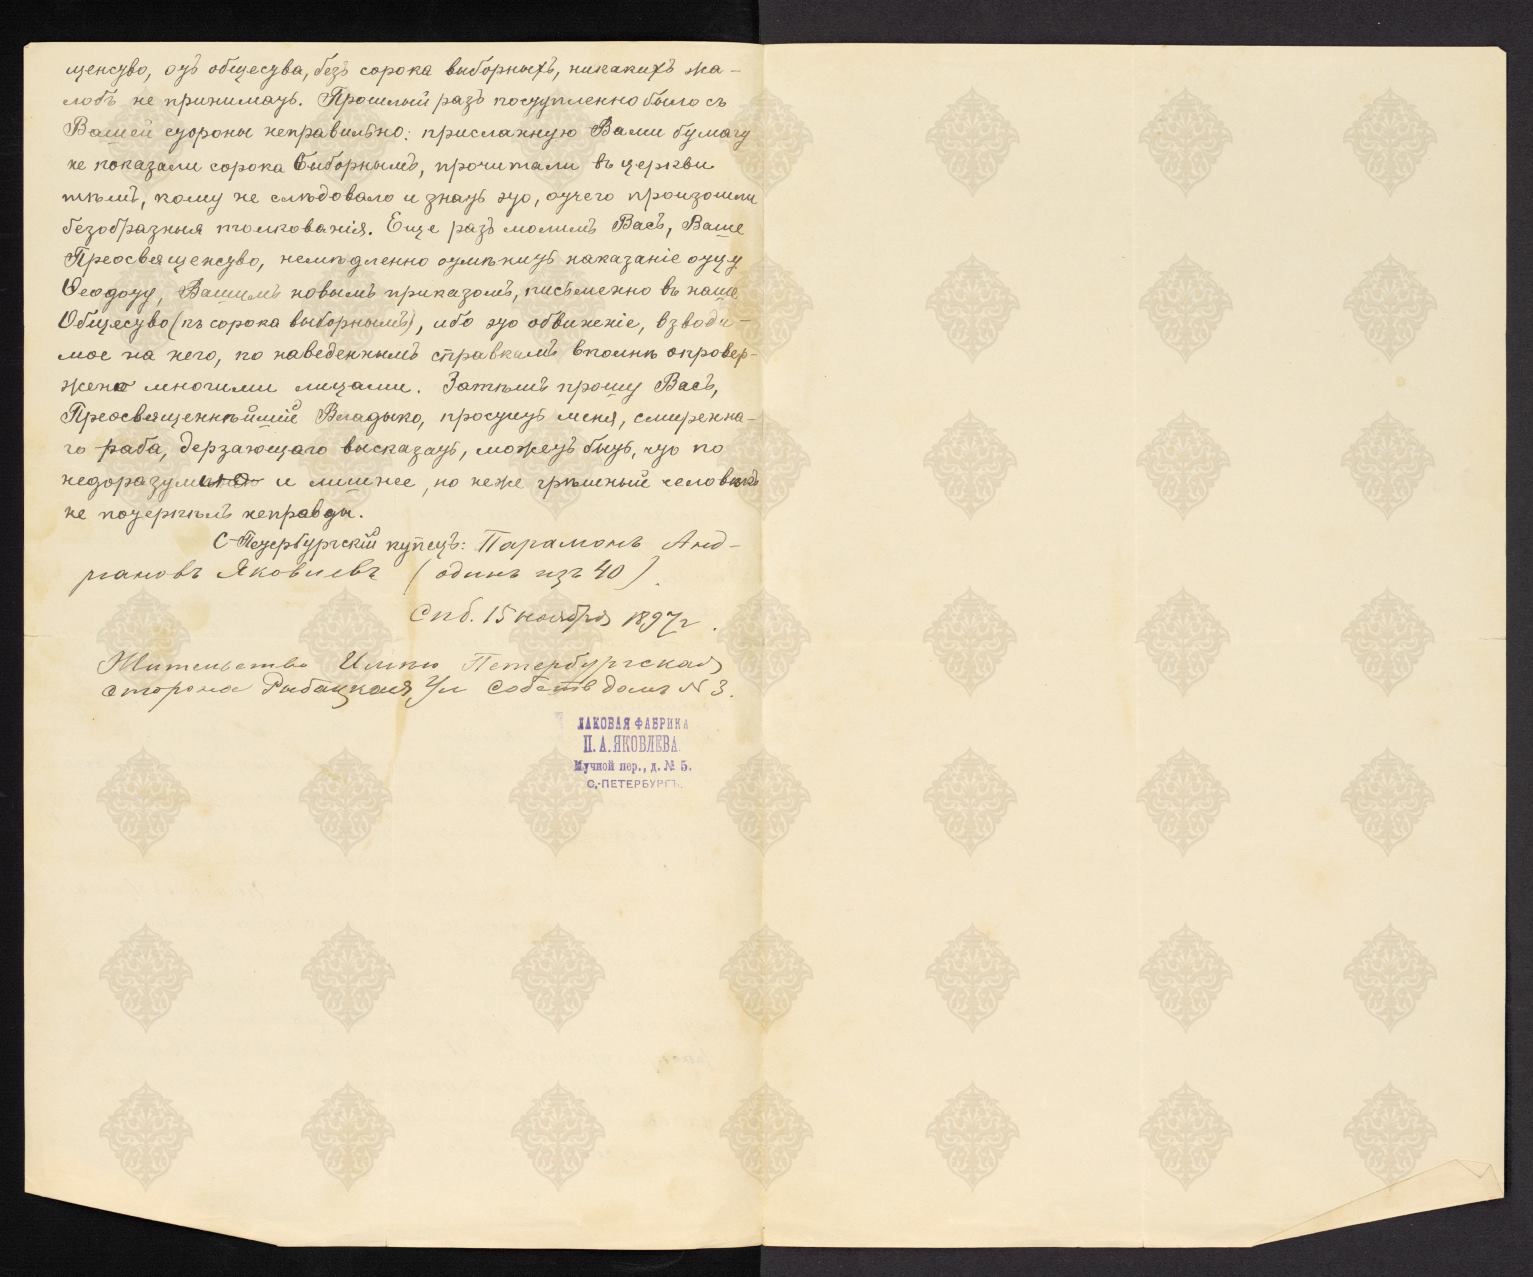 щенство, отъ общества, безъ сорока выборныхъ, никакихъ жа-
лобъ не принимать. Прошлый разъ поступленно было съ
Вашей стороны неправильно: присланную Вами бумагу
не показали сорока выборнымъ, прочитали въ церкви
тѣмъ, кому не слѣдовало и знать это, отчего произошли
безобразныя толкованія. Еще разъ молимъ Васъ, Ваше
Преосвященство, немѣдленно отмѣнить наказаніе отцу
Ѳеодоту, Вашимъ новымъ приказомъ, письменно въ наше
Общество (къ сорока выборнымъ), ибо это обвиненіе, взводи-
мое на него, по наведеннымъ справкамъ вполнѣ опровер-
жено многими лицами. Затѣмъ прошу Васъ,
Преосвященнѣйшій Владыко, простить меня, смиренна-
го раба, дерзающаго высказать, можетъ быть, что по
недоразумѣнію и лишнее, но неже грѣшный человѣкъ
не потерпѣлъ неправды.
С-Петербургскій купецъ: Парамонъ Анд-
риановъ Яковлевъ (одинъ изъ 40).
Спб. 15 ноября 1897 г.
Жительство Имѣю Петербургская
сторона Рыбацкая Ул Собств домъ № 3.
ЛАКОВАЯ ФАБРИКА
П. А. ЯКОВЛЕВА.
Мучной пер., д. № 5.
С.-ПЕТЕРБУРГЪ.